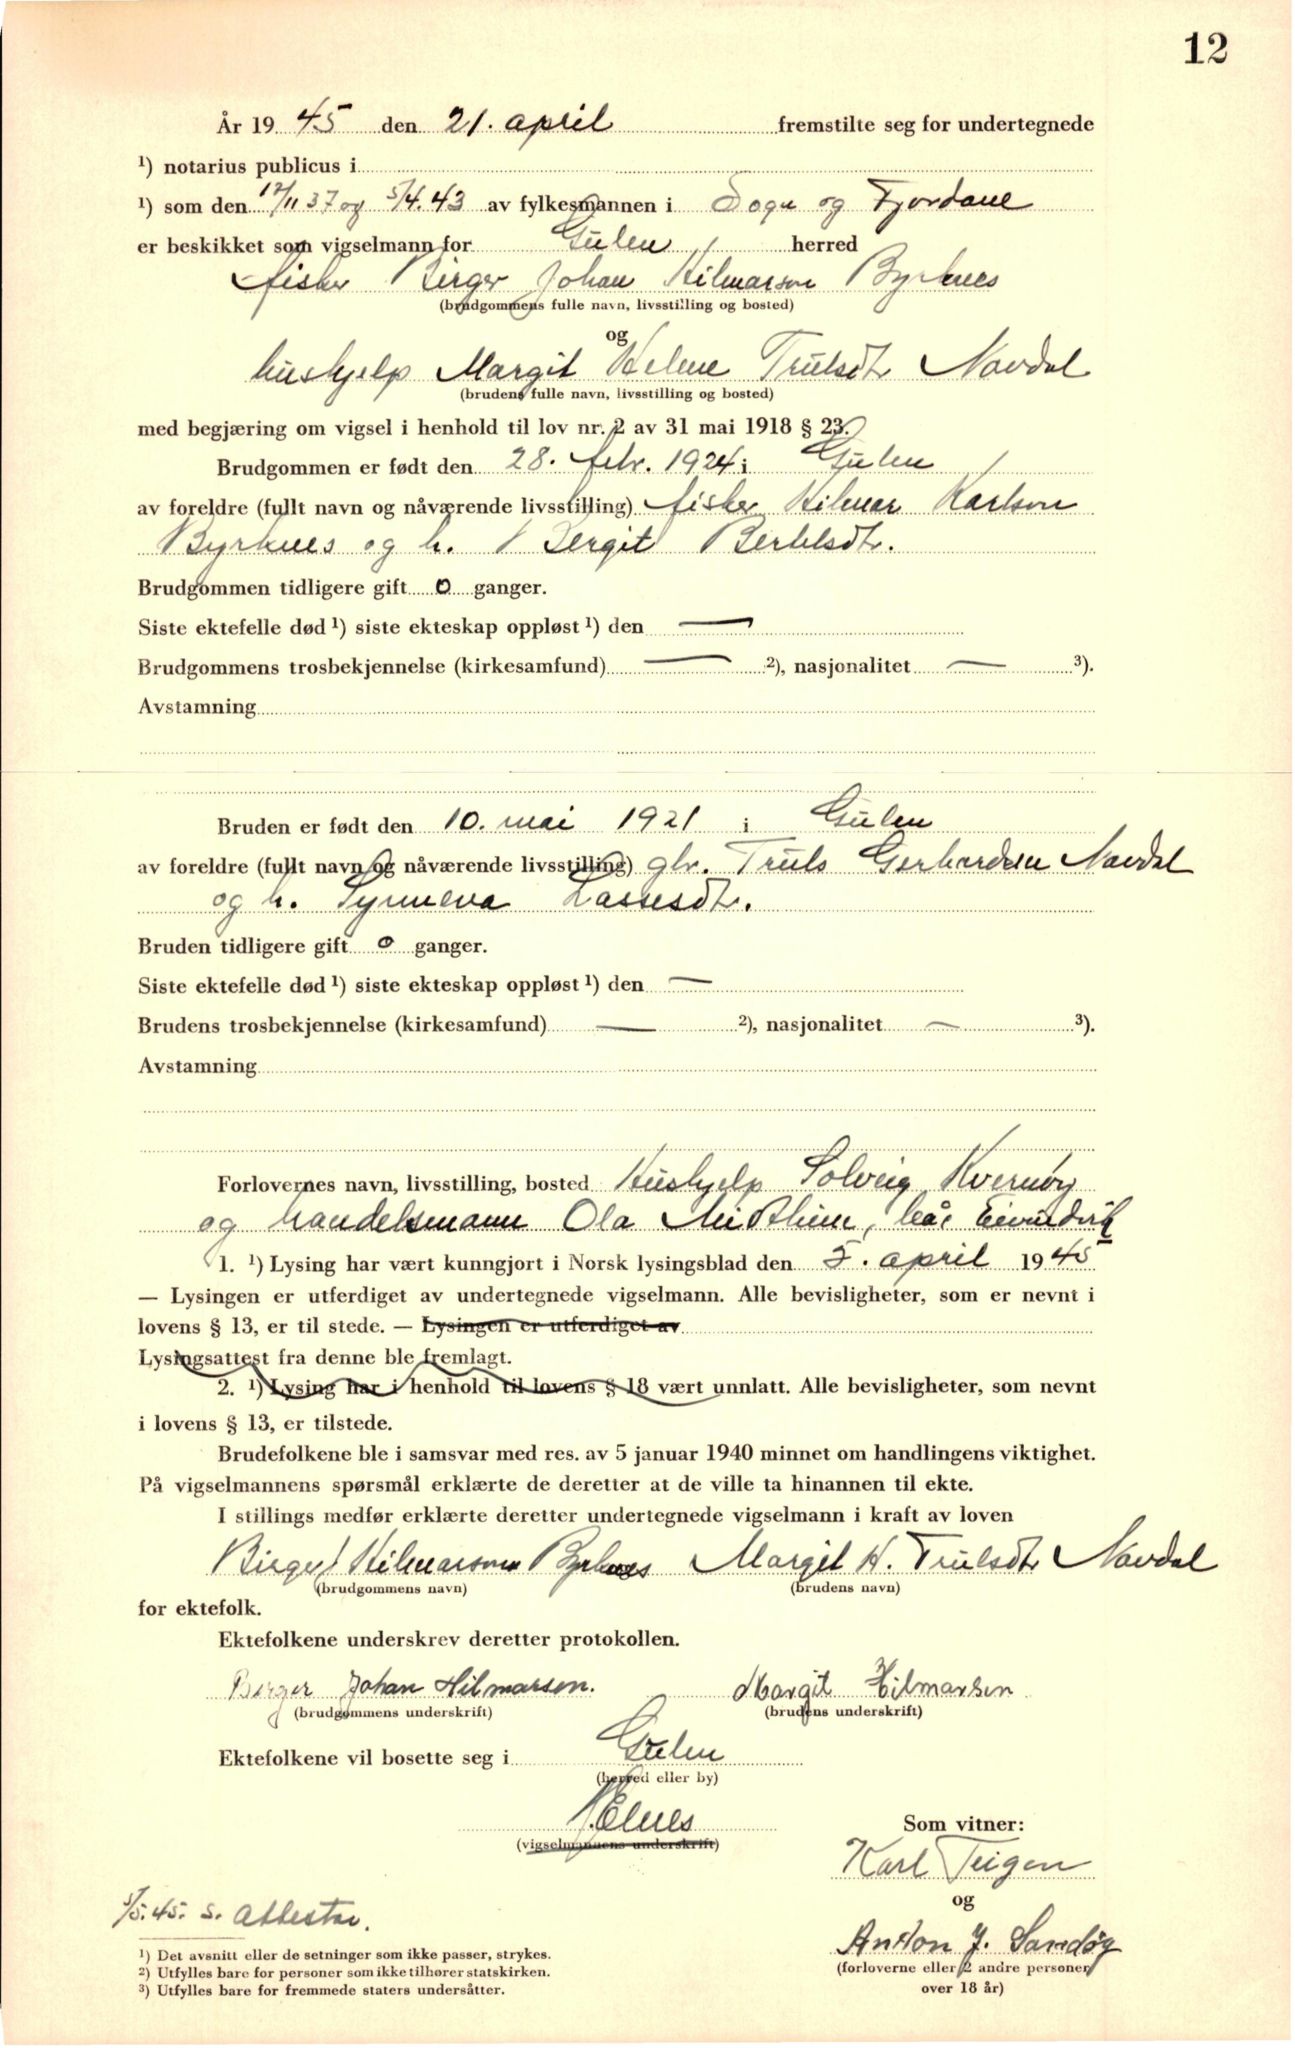 12
År 19 45 den 21. april fremstilte seg for undertegnede
¹) notarius publicus i
¹) som den 17/11 37 og 5/4.43 av fylkesmannen i Sogn og Fjordane
er beskikket som vigselmann for Gulen herred
fisker Birger Johan Hilmarson Byrknes
(brudgommens fulle navn, livsstilling og bosted)
og
hushjelp Margit Helene Trulsdtr Navdal
(brudens fulle navn, livsstilling og bosted)
med begjæring om vigsel i henhold til lov nr. 2 av 31 mai 1918 § 23.
Brudgommen er født den 28. febr. 1924 i Gulen
av foreldre (fullt navn og nåværende livsstilling) fisker Hilmar Karlson
Byrknes og h. Bergit Bertelsdtr.
Brudgommen tidligere gift 0 ganger.
Siste ektefelle død ¹) siste ekteskap oppløst ¹) den —
Brudgommens trosbekjennelse (kirkesamfund) — ²), nasjonalitet — ³).
Avstamning
Bruden er født den 10. mai 1921 i Gulen
av foreldre (fullt navn og nåværende livsstilling) gbr. Truls Gerhardsen Navdal
og h. Synneva Lassesdtr.
Bruden tidligere gift 0 ganger.
Siste ektefelle død ¹) siste ekteskap oppløst ¹) den —
Brudens trosbekjennelse (kirkesamfund) — ²), nasjonalitet — ³).
Avstamning
Forlovernes navn, livsstilling, bosted Hushjelp Solveig Kvernøy
og handelsmann Ola Midthun, beå Eivindvik
1. ¹) Lysing har vært kunngjort i Norsk lysingsblad den 5. april 1945
— Lysingen er utferdiget av undertegnede vigselmann. Alle bevisligheter, som er nevnt i
lovens § 13, er til stede. — Lysingen er utferdiget av
Lysingsattest fra denne ble fremlagt.
2. ¹) Lysing har i henhold til lovens § 18 vært unnlatt. Alle bevisligheter, som nevnt
i lovens § 13, er tilstede.
Brudefolkene ble i samsvar med res. av 5 januar 1940 minnet om handlingens viktighet.
På vigselmannens spørsmål erklærte de deretter at de ville ta hinannen til ekte.
I stillings medfør erklærte deretter undertegnede vigselmann i kraft av loven
Birger J Hilmarson Byrknes Margit H. Trulsdtr Navdal
(brudgommens navn) (brudens navn)
for ektefolk.
Ektefolkene underskrev deretter protokollen.
Birger Johan Hilmarsen. Margit Hilmarsen
(brudgommens underskrift) (brudens underskrift)
Ektefolkene vil bosette seg i Gulen
(herred eller by)
Elnes
(vigselmannens underskrift)
Som vitner:
Karl Teigen
og
Anton J. Sandøy
(forloverne eller 2 andre personer
over 18 år)
5/5.45. s. Attestar.
¹) Det avsnitt eller de setninger som ikke passer, strykes.
²) Utfylles bare for personer som ikke tilhører statskirken.
³) Utfylles bare for fremmede staters undersåtter.